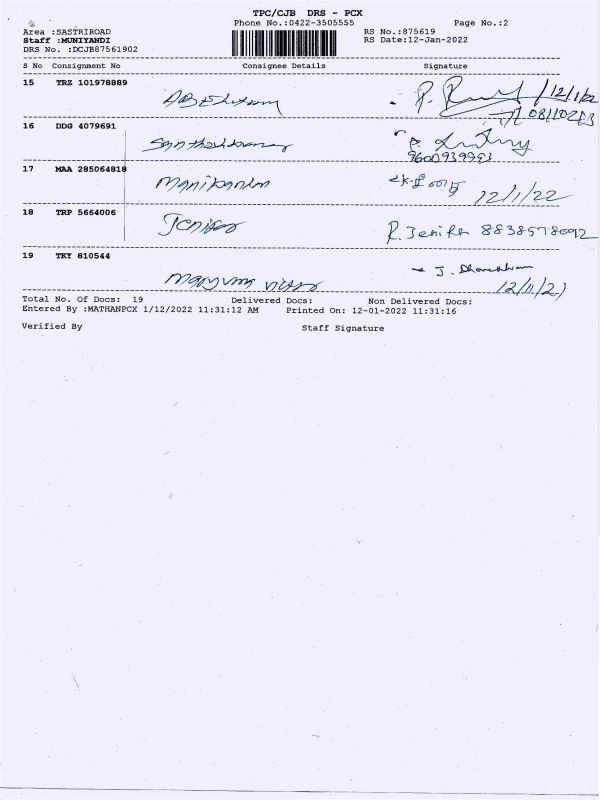 TPC/CJB DRS - PCX
Phone No.:0422-3505555 Page No.:2
Area :SASTRIROAD RS No.:875619
Staff :MUNIYANDI RS Date:12-Jan-2022
DRS No. :DCJB87561902
S No Consignment No Consignee Details Signature
15 TRZ 101978889
12/1/22
16 DDG 4079691
9600939993
17 MAA 285064818 Manikandan
12/1/22
18 TRP 5664006 Jenifer R. Jenifer 8838578092
19 TKY 810544
Total No. Of Docs: 19 Delivered Docs: Non Delivered Docs:
Entered By :MATHANPCX 1/12/2022 11:31:12 AM Printed On: 12-01-2022 11:31:16
Verified By Staff Signature